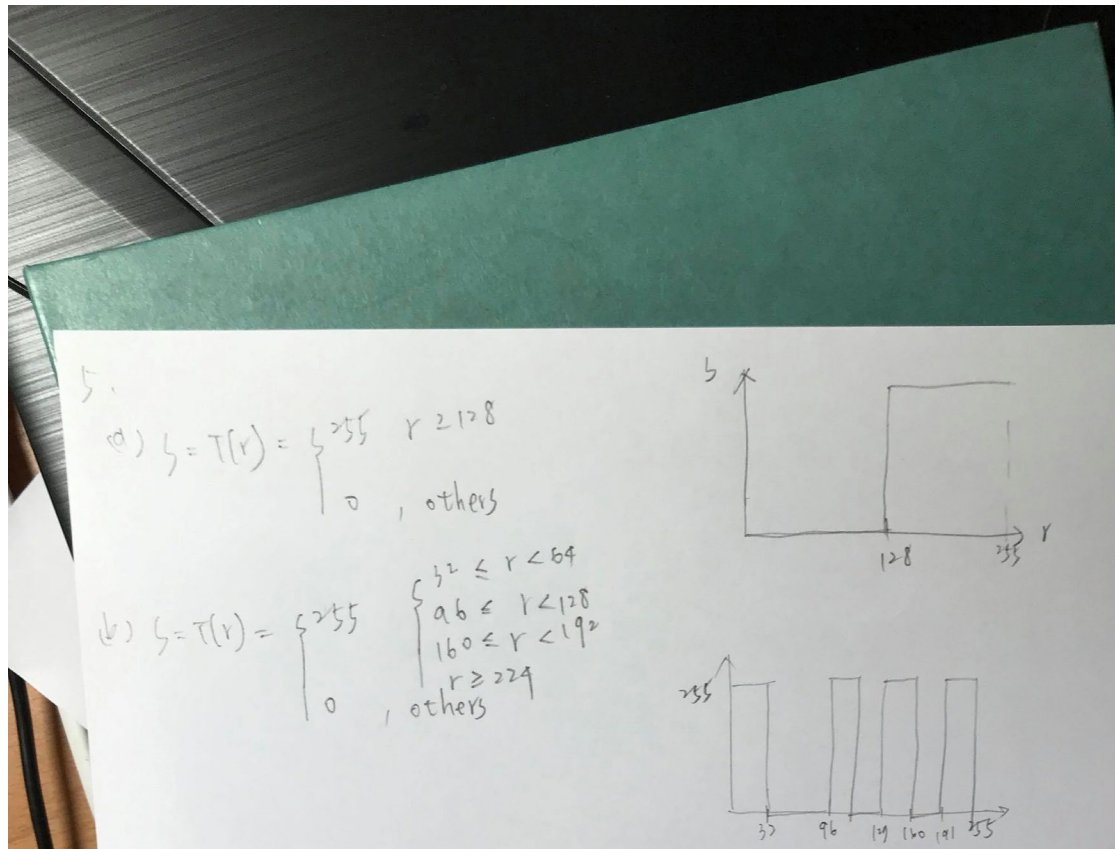 5.
(a) S = T(r) = { 255 r ≥ 128
0 , others
(b) S = T(r) = { 255 { 32 ≤ r < 64
96 ≤ r < 128
160 ≤ r < 192
r ≥ 224
0 , others
s
128
255
r
255
32
96
129
160
191
255